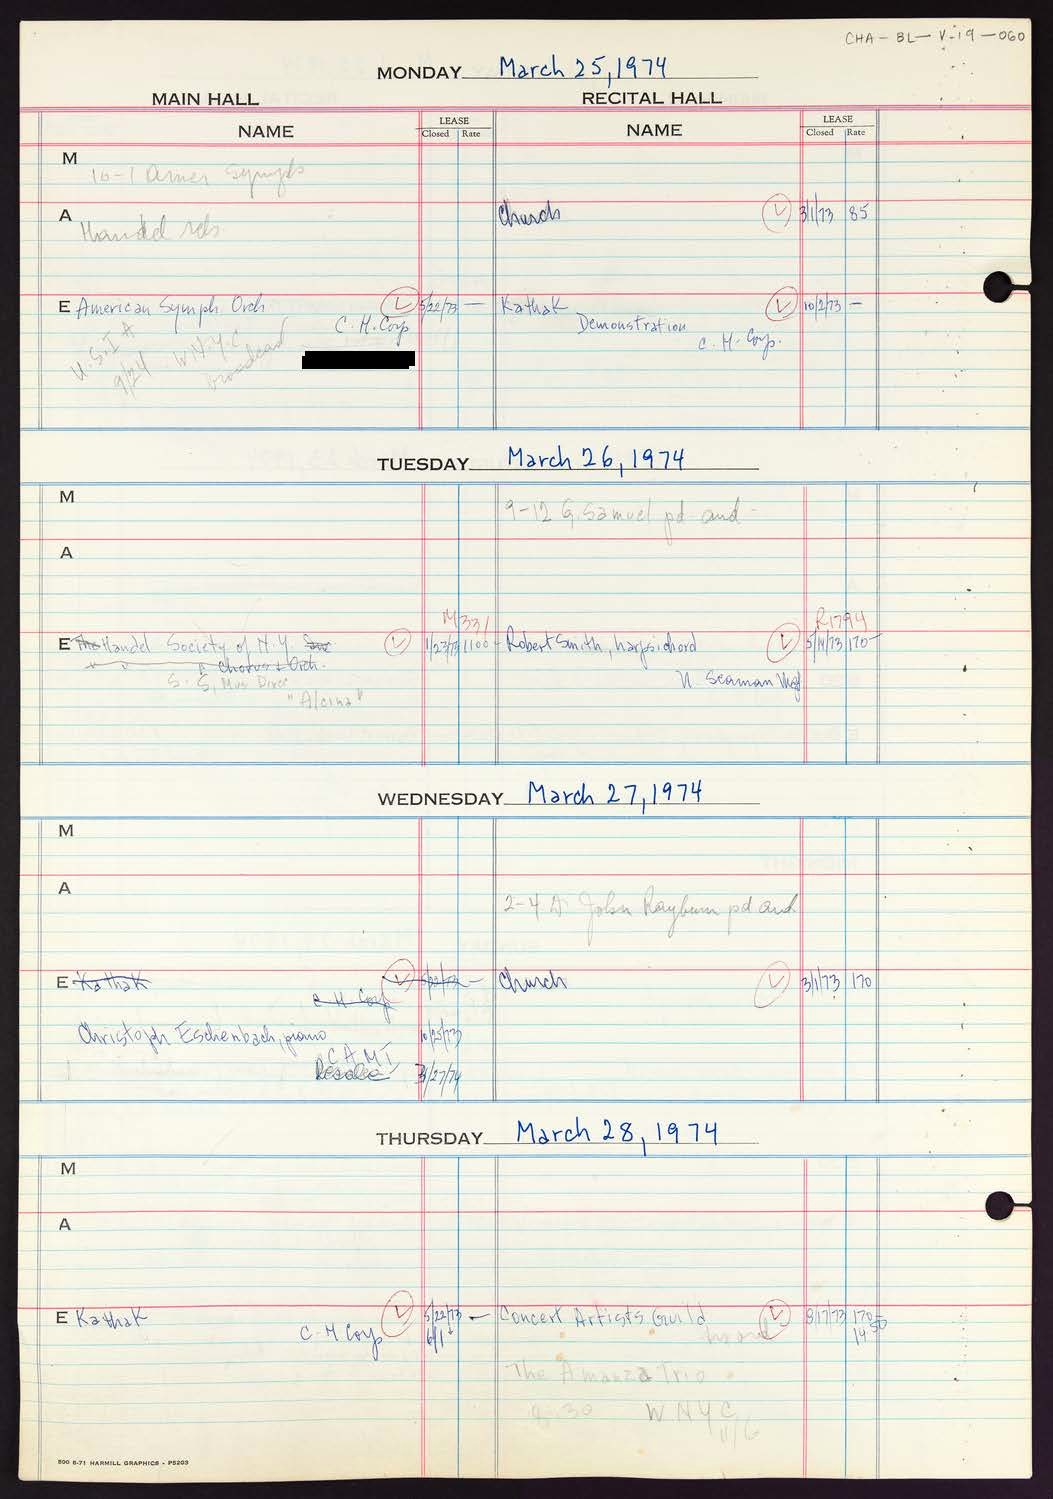 CHA-BL-V-19-060
MONDAY March 25, 1974
MAIN HALL RECITAL HALL
NAME LEASE NAME LEASE
Closed Rate Closed Rate
M 10-1 Amer Symph
A Handel
Church 3/1/73 85
E American Symph Orch 5/22/73 — Kathak 10/2/73 —
C.H. Corp Demonstration
C.H. Corp.
U.S.I A
9/24 W.N.Y.C
broadcast
TUESDAY March 26, 1974
M 9-12 G. Samuel pd and
A
M331 R1794
E The Handel Society of N.Y. 1/23/73 1100- Robert Smith, harpsichord 5/14/73 170-
Chorus & Orch.
S. S, Mus Direc N Seaman Mgt
"Alcina"
WEDNESDAY March 27, 1974
M
A 2-4 John Rayburn pd and
E Kathak 5/22/73 — Church 3/1/73 170
C H Corp
Christoph Eschenbach, piano 10/25/73
C A M I
3/27/74
THURSDAY March 28, 1974
M
A
E Kathak 5/22/73 — Concert Artists Guild 8/17/73 170-
C. H Corp 6/1 14.50
The Amanza Trio
8:30 WNYC
11/6
500 6-71 HARMILL GRAPHICS - P5203